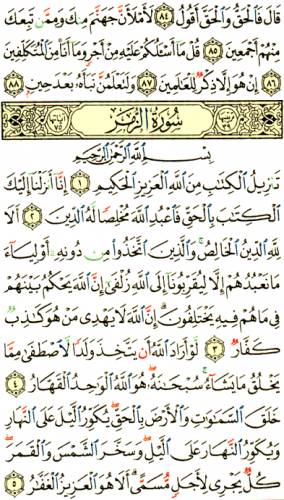 قَالَ فَالْحَقُّ وَالْحَقَّ أَقُولُ ﴿٨٤﴾ لَأَمْلَأَنَّ جَهَنَّمَ مِنكَ وَمِمَّن تَبِعَكَ
مِنْهُمْ أَجْمَعِينَ ﴿٨٥﴾ قُلْ مَا أَسْئَلُكُمْ عَلَيْهِ مِنْ أَجْرٍ وَمَا أَنَا مِنَ الْمُتَكَلِّفِينَ
﴿٨٦﴾ إِنْ هُوَ إِلَّا ذِكْرٌ لِلْعَالَمِينَ ﴿٨٧﴾ وَلَتَعْلَمُنَّ نَبَأَهُ بَعْدَ حِينٍ ﴿٨٨﴾
سُورَةُ الزُّمَرِ
بِسْمِ اللَّهِ الرَّحْمَنِ الرَّحِيمِ
تَنزِيلُ الْكِتَابِ مِنَ اللَّهِ الْعَزِيزِ الْحَكِيمِ ﴿١﴾ إِنَّا أَنزَلْنَا إِلَيْكَ
الْكِتَابَ بِالْحَقِّ فَاعْبُدِ اللَّهَ مُخْلِصًا لَهُ الدِّينَ ﴿٢﴾ أَلَا
لِلَّهِ الدِّينُ الْخَالِصُ وَالَّذِينَ اتَّخَذُوا مِن دُونِهِ أَوْلِيَاءَ
مَا نَعْبُدُهُمْ إِلَّا لِيُقَرِّبُونَا إِلَى اللَّهِ زُلْفَى إِنَّ اللَّهَ يَحْكُمُ بَيْنَهُمْ
فِي مَا هُمْ فِيهِ يَخْتَلِفُونَ إِنَّ اللَّهَ لَا يَهْدِي مَنْ هُوَ كَاذِبٌ
كَفَّارٌ ﴿٣﴾ لَوْ أَرَادَ اللَّهُ أَن يَتَّخِذَ وَلَدًا لَاصْطَفَى مِمَّا
يَخْلُقُ مَا يَشَاءُ سُبْحَانَهُ هُوَ اللَّهُ الْوَاحِدُ الْقَهَّارُ ﴿٤﴾
خَلَقَ السَّمَاوَاتِ وَالْأَرْضَ بِالْحَقِّ يُكَوِّرُ اللَّيْلَ عَلَى النَّهَارِ
وَيُكَوِّرُ النَّهَارَ عَلَى اللَّيْلِ وَسَخَّرَ الشَّمْسَ وَالْقَمَرَ
كُلٌّ يَجْرِي لِأَجَلٍ مُسَمًّى أَلَا هُوَ الْعَزِيزُ الْغَفَّارُ ﴿٥﴾